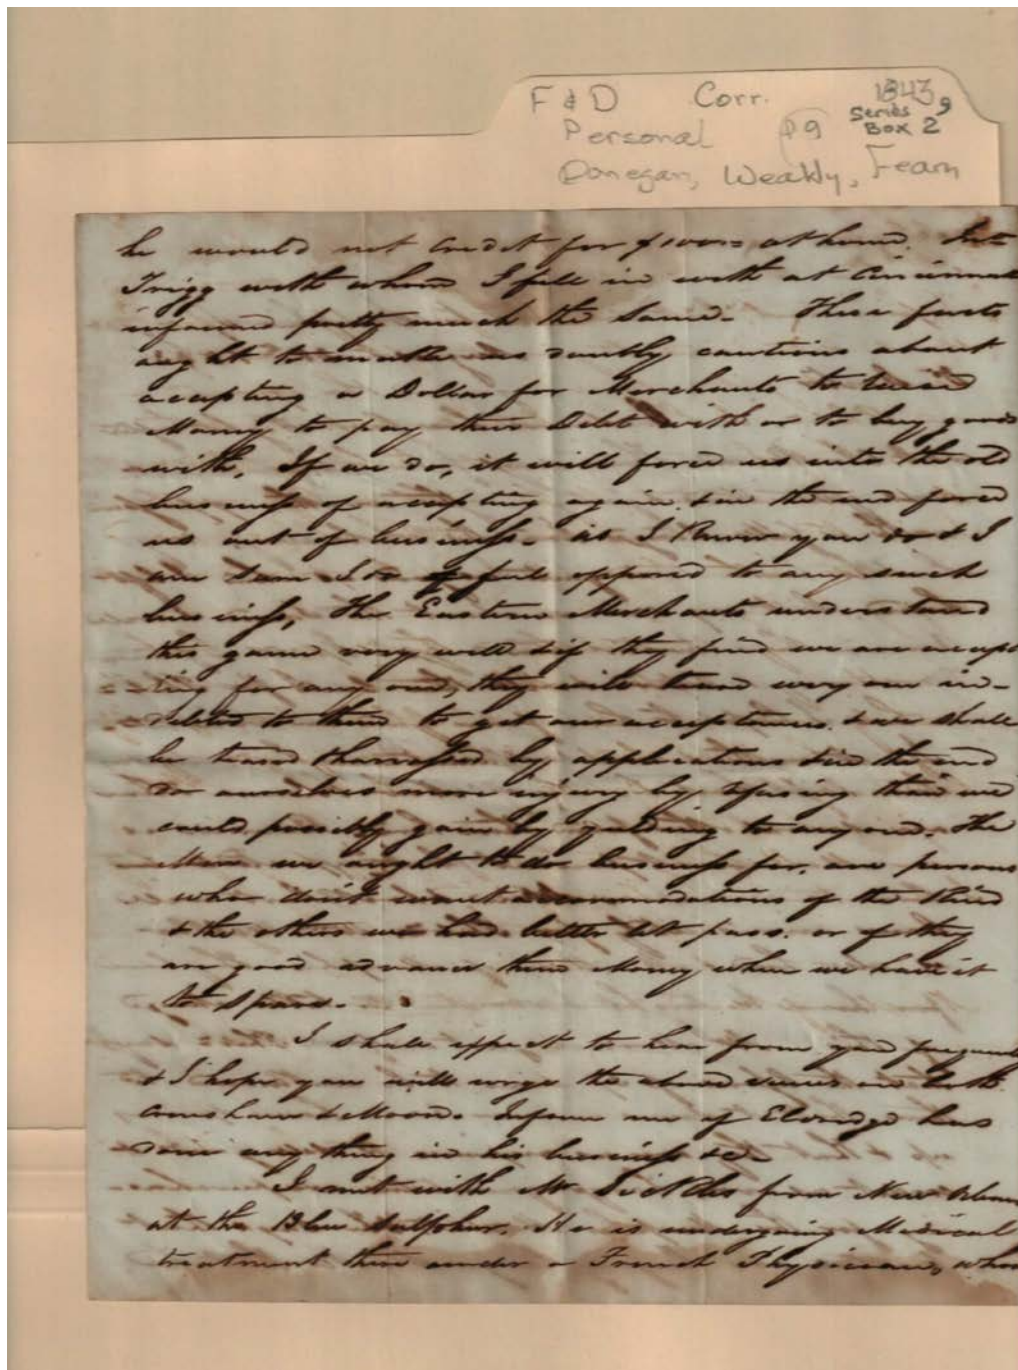 F & D Corr. 1843,
Series 9
Personal P9 Box 2
Donegan, Weakly, Fearn
he would not credit for $100= at home.
Trigg with whom I fell in with at Cincinnati
informed pretty much the same. These facts
ought to make us doubly cautious about
accepting a Dollar for Merchants to raise
Money to pay their Debts with or to buy goods
with. If we do, it will force us into the old
business of accepting again & in the end force
us out of business. as I Know you do & I
am & am I do feel opposed to any such
business, The Eastern Merchants understand
this game very well & if they find we are accep
ting for any one, they will send every one in-
debted to them to get our acceptances. & we shall
be teased & harrassed by applications & in the end
do ourselves more injury by refusing than we
could possibly gain by yielding to any one. The
Men we ought to do business for, are persons
who don't want accommodations of the Kind
& the others we had better let pass. or if they
are good advance them Money when we have it
to spare.
I shall expect to hear from you frequently
& I hope you will urge the above views on both
Crenshaw & Moore. Inform me if Elvridge has
done any thing in his business &c.
I met with Mr Sickles from New Orleans
at the Blue Sulphur. He is undergoing Medical
treatment there under a French Physician, who